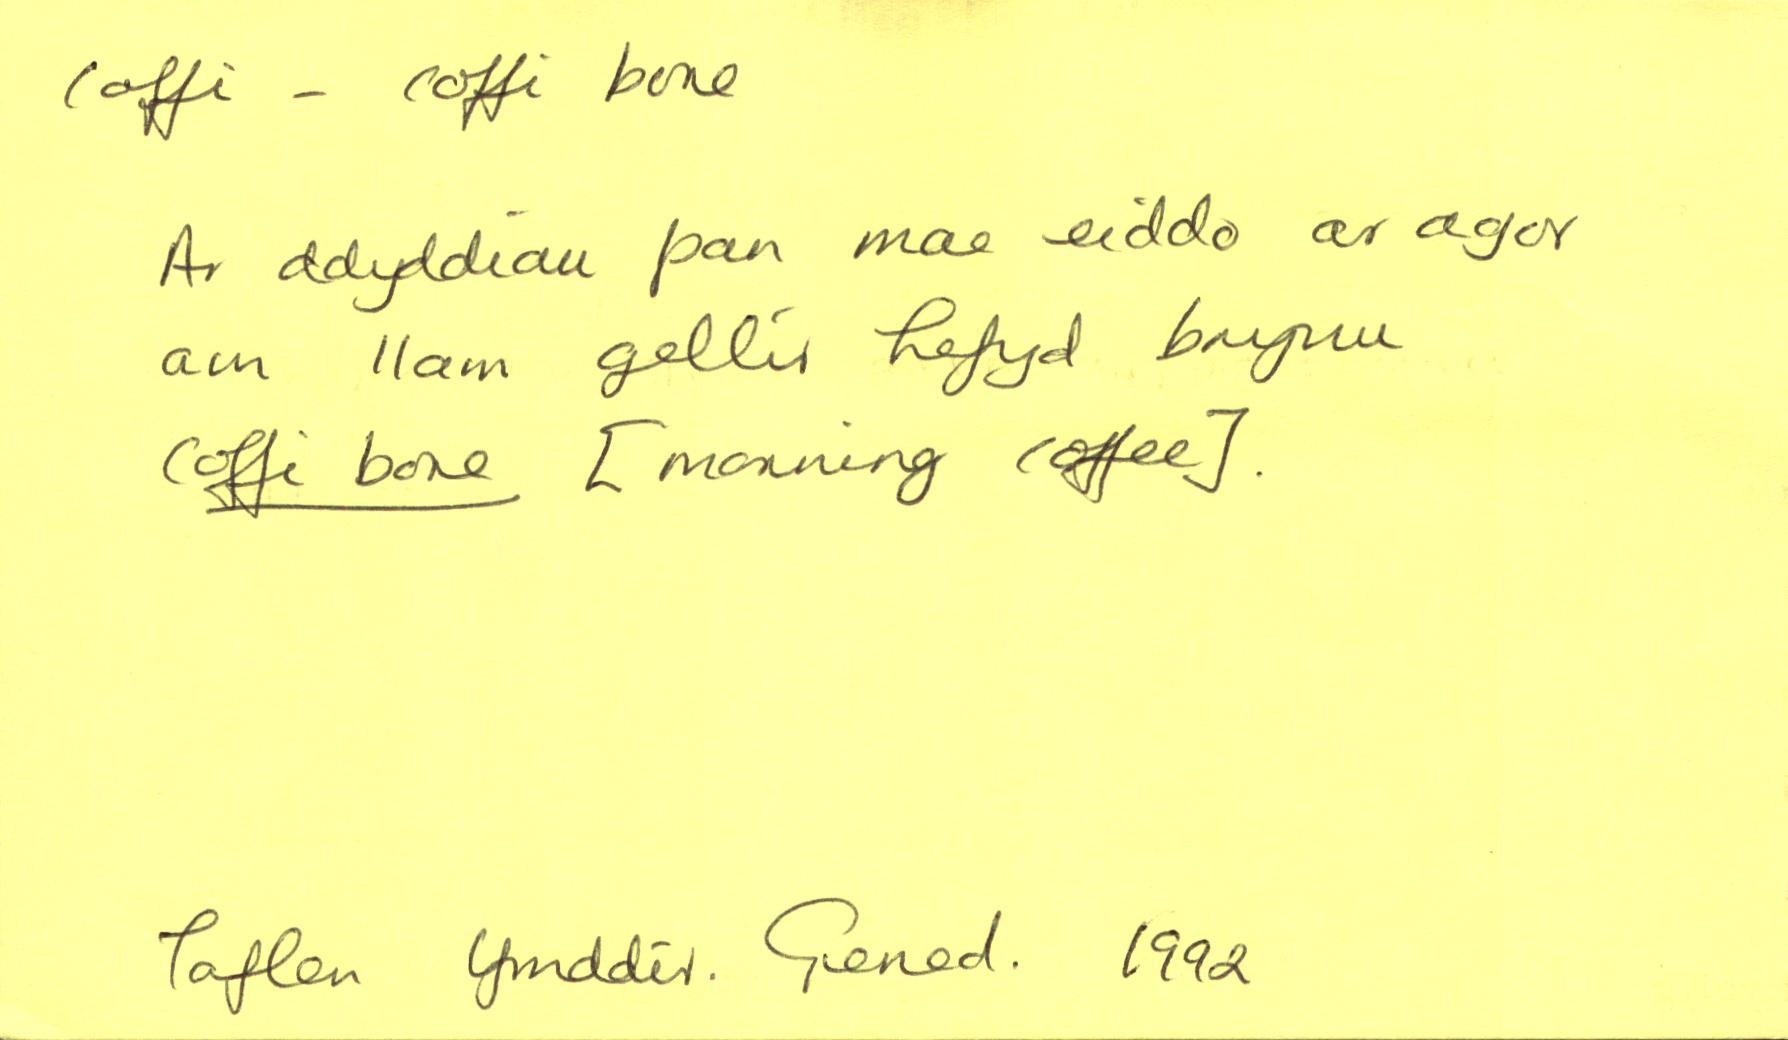 coffi - coffi bore
Ar ddyddiau pan mae eiddo ar agor
am 11am gellir hefyd brynu
coffi bore [morning coffee].
Taflen Ymddir. Gened. 1992